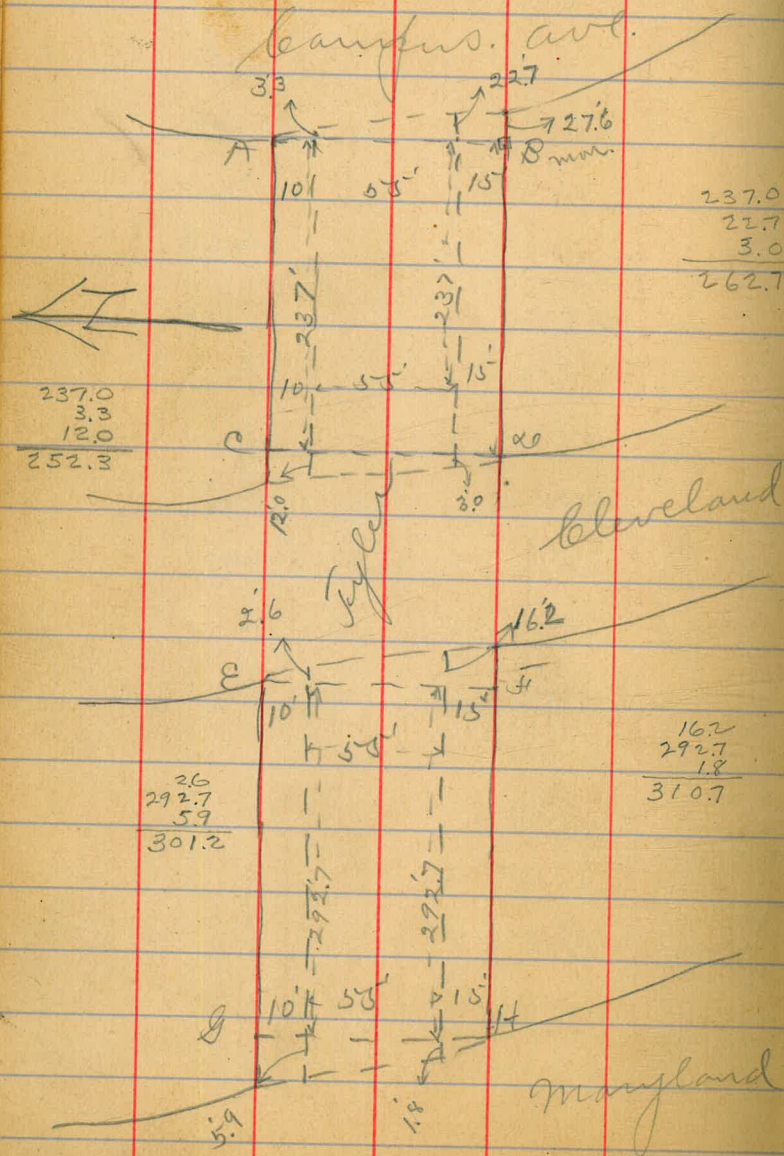 Campus. ave.
3.3
22.7
27.6
A
B mon.
10'
55'
15'
237.0
22.7
3.0
262.7
237'
237'
10
55'
15'
237.0
3.3
12.0
252.3
C
12.0
3.0
Cleveland
Tyler
2.6
16.2
E
F
10'
15'
55'
16.2
292.7
1.8
310.7
2.6
292.7
5.9
301.2
292.7'
292.7'
10'
55'
15'
G
H
5.9
1.8
Maryland